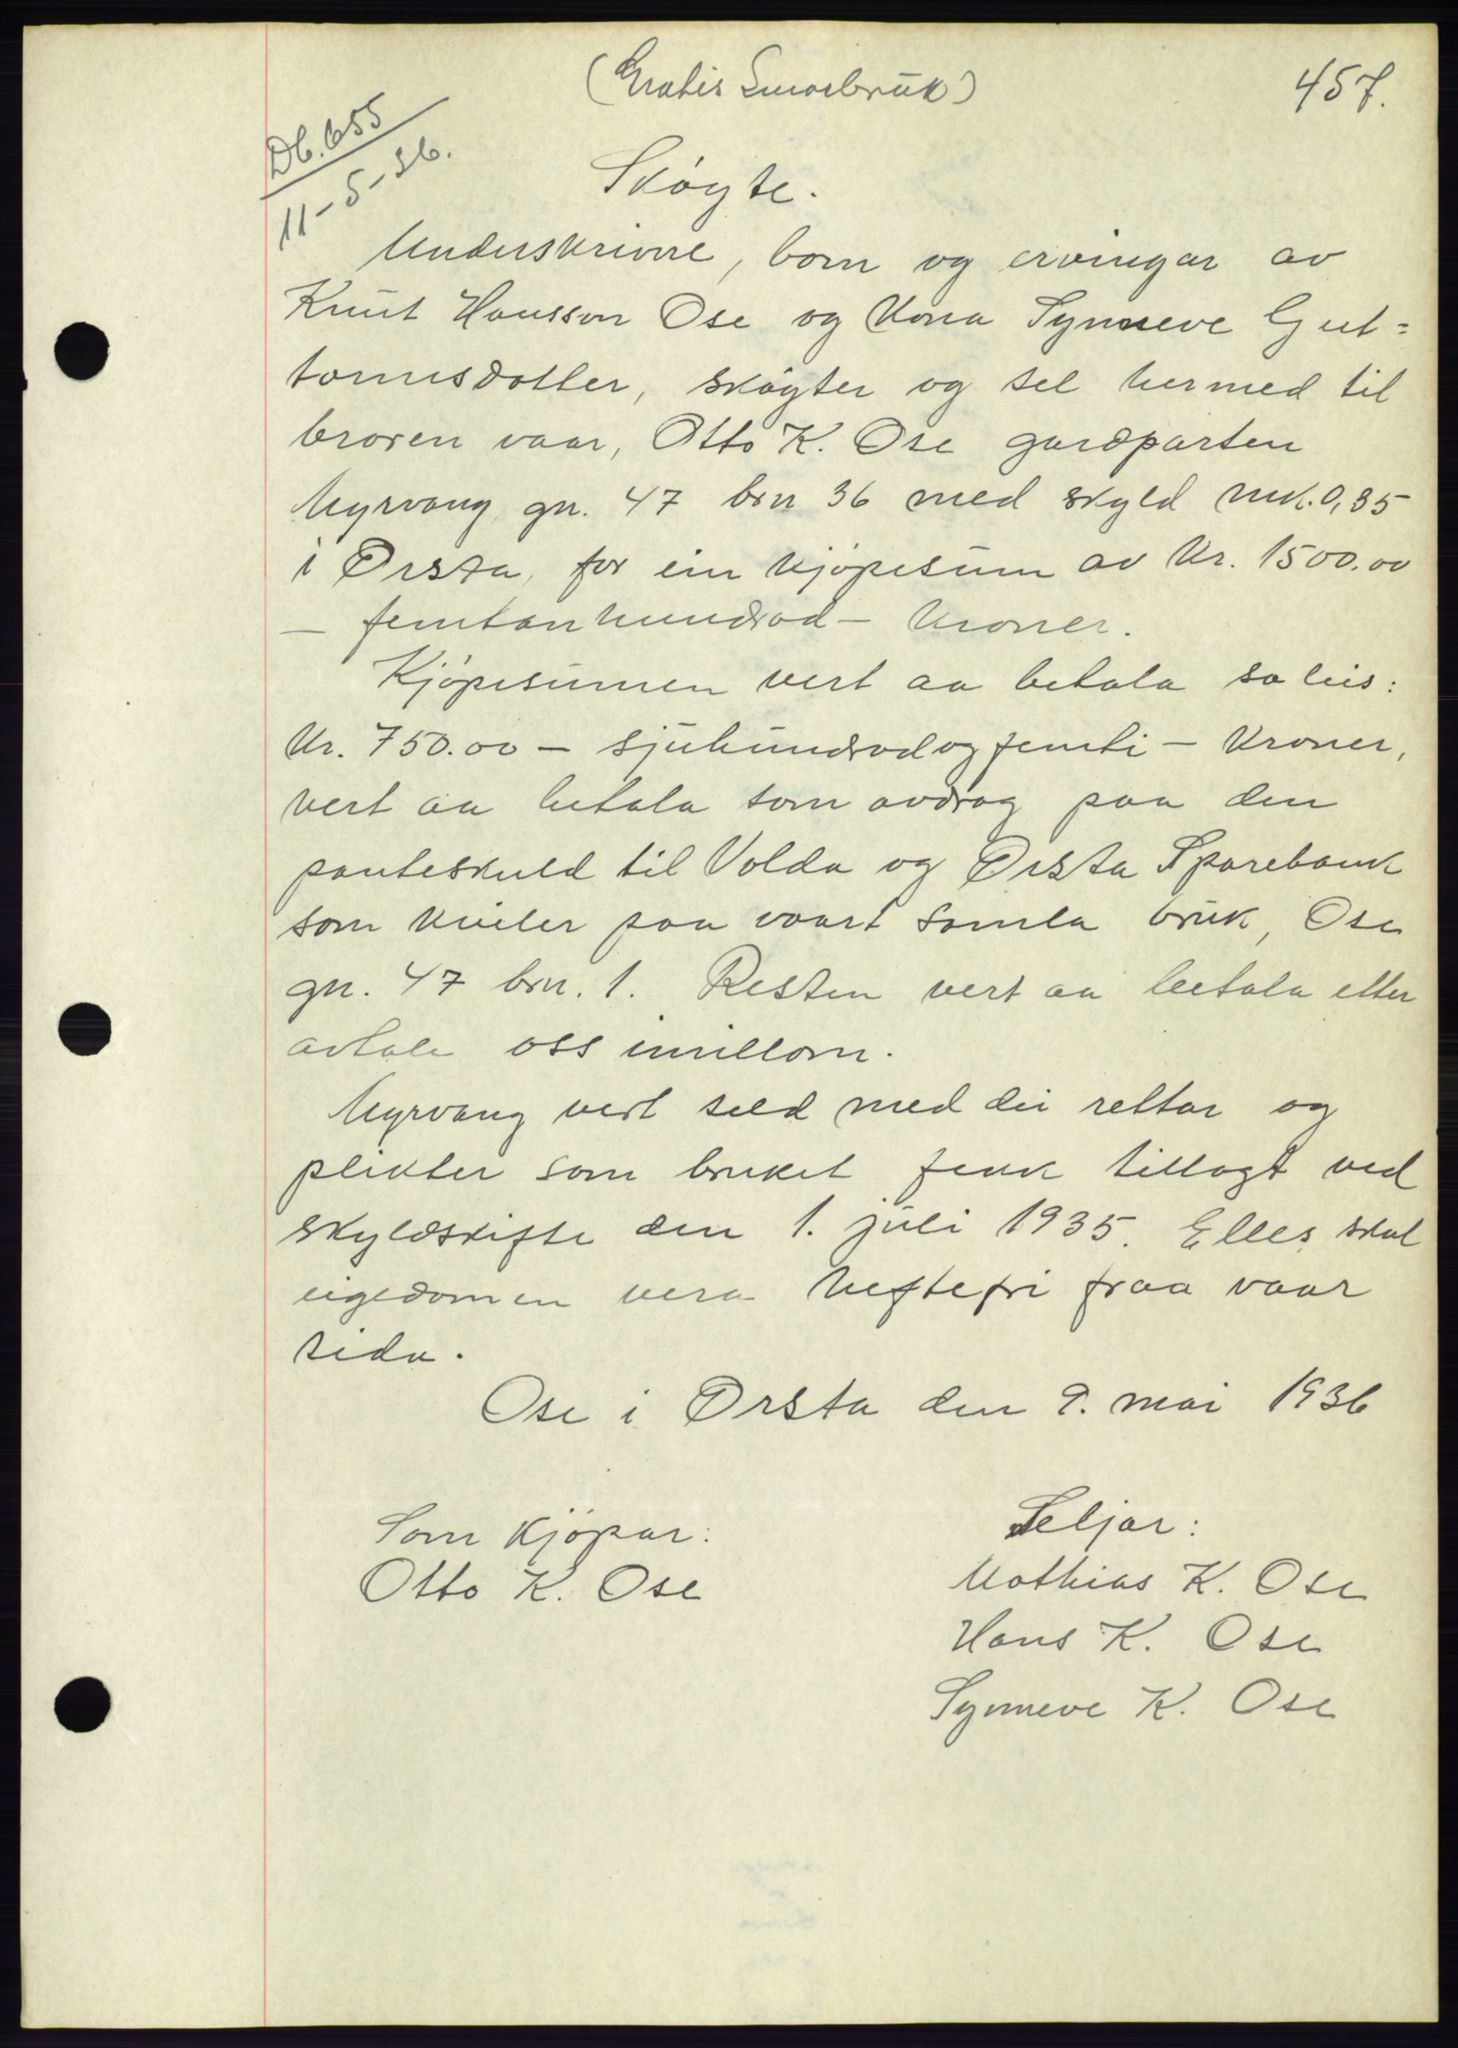 (Gratis Smaabruk)
457.
Db. 655
11-5-36.
Skøyte.
Underskrivne, born og ervingar av
Knut Hansson Ose og kona Synneve Gut=
tormsdotter, skøyter og sel hermed til
broren vaar, Otto K. Ose gardparten
Myrvang gn. 47 brn 36 med skyld mk. 0,35
i Ørsta, for ein kjöpesum av kr. 1500.00
— femtanhundrad — kroner.
Kjöpesumen vert aa betala so leis:
Kr. 750.00 — sjuhundradogfemti — kroner,
vert aa betala som avdrag paa den
panteskuld til Volda og Ørsta Sparebank
som kviler paa vaart samla bruk, Ose
gn. 47 brn. 1. Resten vert aa betala etter
avtale oss imillom.
Myrvang vert seld med dei rettar og
plikter som bruket fekk tillagt ved
skyldskifte den 1. juli 1935. Elles skal
eigedomen vera heftefri fraa vaar
sida.
Ose i Ørsta den 9. mai 1936
Som kjöpar:
Otto K. Ose
Seljar:
Mathias K. Ose
Hans K. Ose
Synneve K. Ose